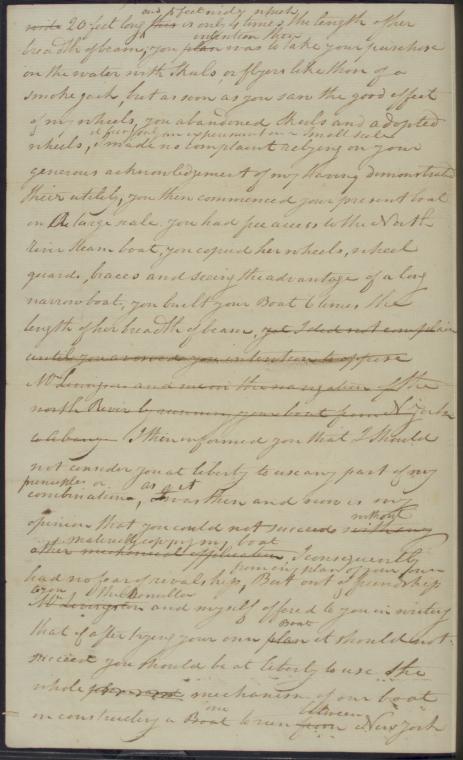 20 feet long this is only 4 times the length of her
breadth of beam, your plan intention then was to take your purchase
on the water with skuls or flyers like those of a
smoke jack, but as soon as you saw the good effect
of my wheels, you abandoned skuls and adopted
wheels, I made no complaint relying on your
generous acknowledgment of my having demonstrated
their utility, you then commenced your present boat
on a large scale you had free access to the North
river steam boat, you copied her wheels, wheel
guards, braces and seeing the advantage of a long
narrow boat, you built your Boat 6 times the
length of her breadth of beam, yet I did not complain
until you avowed your intention to oppose
Mr Livingston and me in the navigation of the
north River by running your boat from N York
to Albany I then informed you that I should
not consider you at liberty to use any part of my
principles or
combinations, as yet It was then and now is my
opinion that you could not succeed without
materially copying my boat
other mechanical application, I consequently
had no fear of rivalship, from any plan of your own But out of friendship
to you the Chancellor
Mr Livingston and myself offered to you in writing
that if after trying your own plan Boat it should not
succeed you should be at liberty to use the
whole mechanism of our boat
in constructing a Boat one to run from between New York